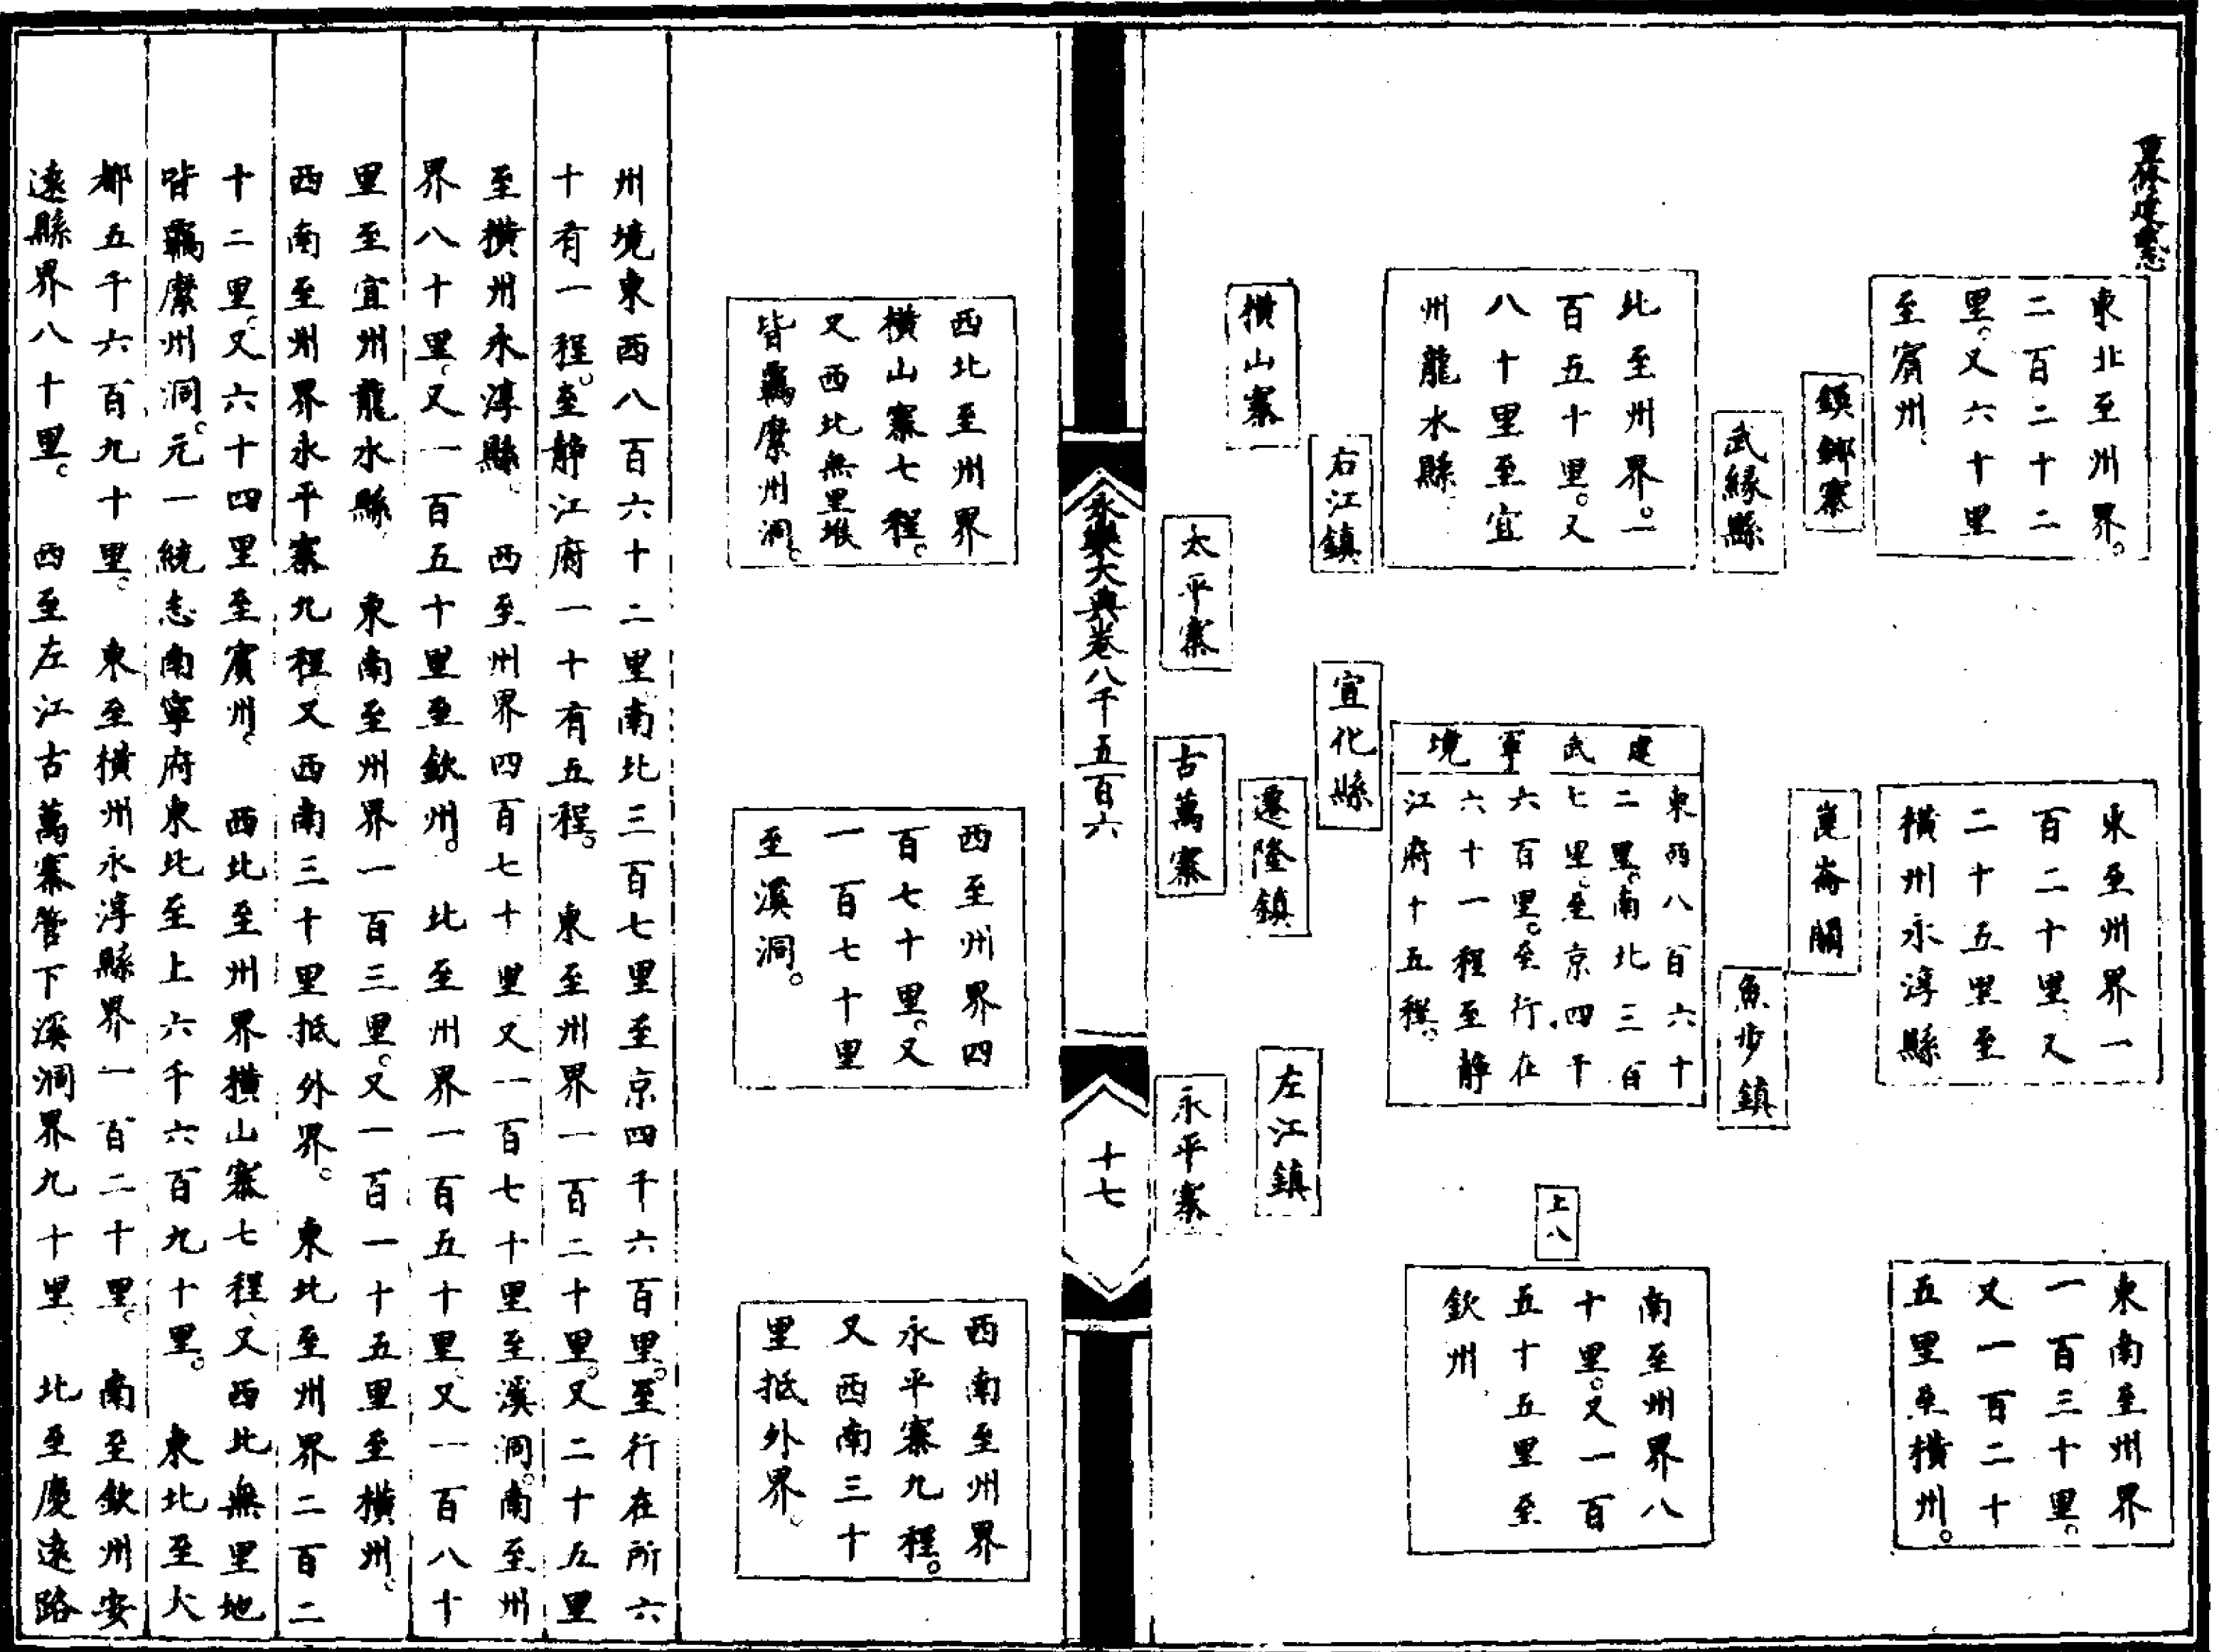 東北至州界。
二百二十二
里。又六十里
至賓州。
東至州界一
百二十里。又
二十五里至
橫州永淳縣
東南至州界
一百三十里。
又一百二十
五里至橫州。
鎮鄉寨
崑崙關
武緣縣
魚步鎮
北至州界。一
百五十里。又
八十里至宜
州龍水縣
建武軍境
東西八百六十
二里。南北三百
七里。至京四千
六百里。至行在
六十一程至靜
江府十五程。
上八
南至州界八
十里。又一百
五十五里至
欽州
右江鎮
宜化縣
橫山寨
遷隆鎮
左江鎮
太平寨
古萬寨
永平寨
永樂大典卷八千五百六
十七
西北至州界
橫山寨七程。
又西北無里堠
皆羈縻州洞。
西至州界四
百七十里。又
一百七十里
至溪洞。
西南至州界
永平寨九程。
又西南三十
里抵外界。
州境東西八百六十二里南北三百七里至京四千六百里。至行在所六
十有一程。至靜江府一十有五程。　東至州界一百二十里。又二十五里
至橫州永淳縣。　西至州界四百七十里又一百七十里至溪洞。南至州
界八十里。又一百五十里至欽州。　北至州界一百五十里、又一百八十
里至宜州龍水縣　東南至州界一百三里。又一百一十五里至橫州。
西南至州界永平寨九程、又西南三十里抵外界。　東北至州界二百二
十二里。又六十四里至賓州、　西北至州界橫山寨七程、又西北無里地
皆羈縻州洞。元一統志南寧府東北至上六千六百九十里。　東北至大
都五千六百九十里。　東至橫州永淳縣界一百二十里、　南至欽州安
遠縣界八十里。　西至左江古萬寨管下溪洞界九十里、　北至慶遠路